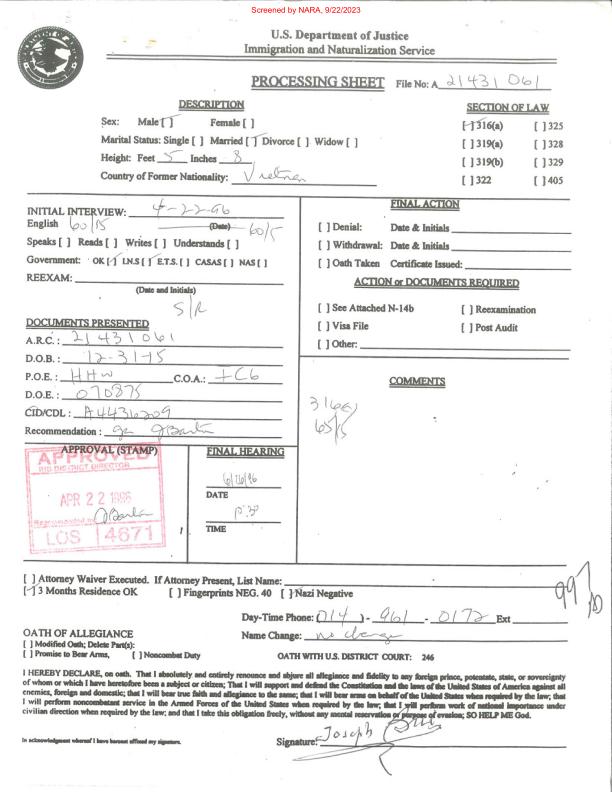 Screened by NARA, 9/22/2023
U.S. Department of Justice
Immigration and Naturalization Service
PROCESSING SHEET File No: A 21431 061
DESCRIPTION
SECTION OF LAW
Sex: Male [✓] Female [ ]
[✓] 316(a) [ ] 325
Marital Status: Single [ ] Married [✓] Divorce [ ] Widow [ ]
[ ] 319(a) [ ] 328
Height: Feet 5 Inches 8
[ ] 319(b) [ ] 329
Country of Former Nationality: Vietnam
[ ] 322 [ ] 405
INITIAL INTERVIEW: 4-22-96
(Date)
English 60/15 60/5
Speaks [ ] Reads [ ] Writes [ ] Understands [ ]
Government: OK [✓] I.N.S [✓] E.T.S. [ ] CASAS [ ] NAS [ ]
REEXAM:
(Date and Initials)
S/R
FINAL ACTION
[ ] Denial: Date & Initials
[ ] Withdrawal: Date & Initials
[ ] Oath Taken Certificate Issued:
ACTION or DOCUMENTS REQUIRED
[ ] See Attached N-14b [ ] Reexamination
[ ] Visa File [ ] Post Audit
[ ] Other:
DOCUMENTS PRESENTED
A.R.C.: 21431061
D.O.B.: 12-31-15
P.O.E.: HHW C.O.A.: IC6
D.O.E.: 070875
CID/CDL: A4436209
Recommendation:
COMMENTS
316(a)
65/15
APPROVAL (STAMP)
APPROVED
DISTRICT DIRECTOR
APR 22 1996
Recommended by
LOS 4671
FINAL HEARING
DATE
TIME
[ ] Attorney Waiver Executed. If Attorney Present, List Name:
[✓] 3 Months Residence OK [ ] Fingerprints NEG. 40 [ ] Nazi Negative
997
Day-Time Phone: (014) - 961 - 0172 Ext
Name Change: no change
OATH OF ALLEGIANCE
[ ] Modified Oath; Delete Part(s):
[ ] Promise to Bear Arms, [ ] Noncombat Duty
OATH WITH U.S. DISTRICT COURT: 246
I HEREBY DECLARE, on oath. That I absolutely and entirely renounce and abjure all allegiance and fidelity to any foreign prince, potentate, state, or sovereignty
of whom or which I have heretofore been a subject or citizen; That I will support and defend the Constitution and the laws of the United States of America against all
enemies, foreign and domestic; that I will bear true faith and allegiance to the same; that I will bear arms on behalf of the United States when required by the law; that
I will perform noncombatant service in the Armed Forces of the United States when required by the law; that I will perform work of national importance under
civilian direction when required by the law; and that I take this obligation freely, without any mental reservation or purpose of evasion; SO HELP ME God.
In acknowledgment whereof I have hereunto affixed my signature.
Signature: Joseph